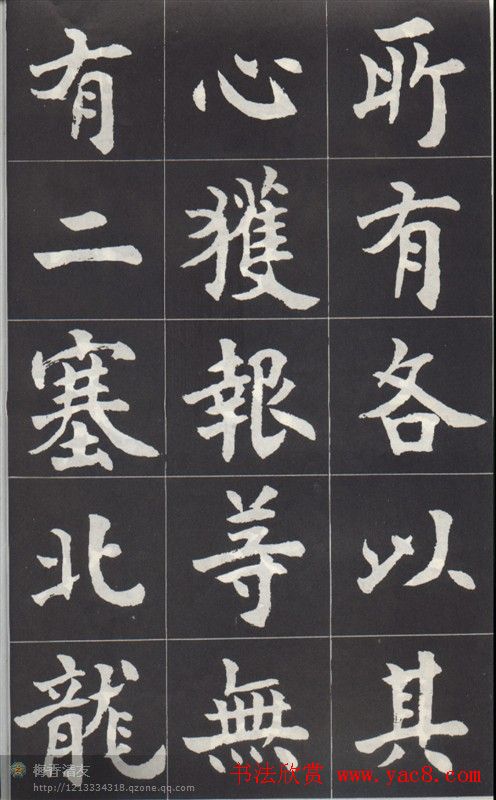 所有各以其
心獲報等無
有二塞北龍
书法欣赏
www.yac8.com
梅香清友
http://1213334318.qzone.qq.com